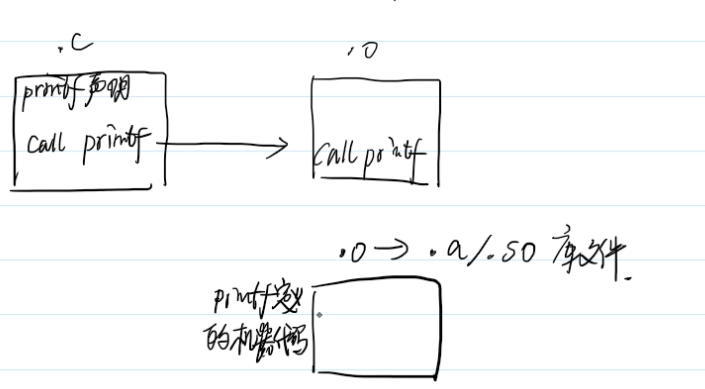 .C
printf声明
call printf
.O
call printf
.O → .a/.so 库文件.
printf定义
的机器代码